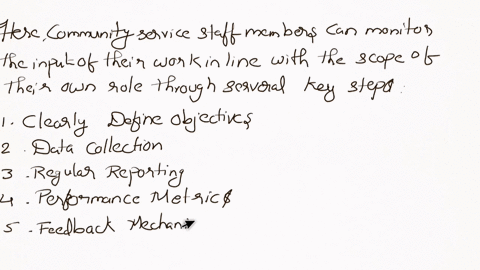 Here, Community service staff members can monitor
the input of their work in line with the scope of
their own role through serveral key steps:
1. Clearly Define Objectives
2. Data Collection
3. Regular Reporting
4. Performance Metrics
5. Feedback Mechan